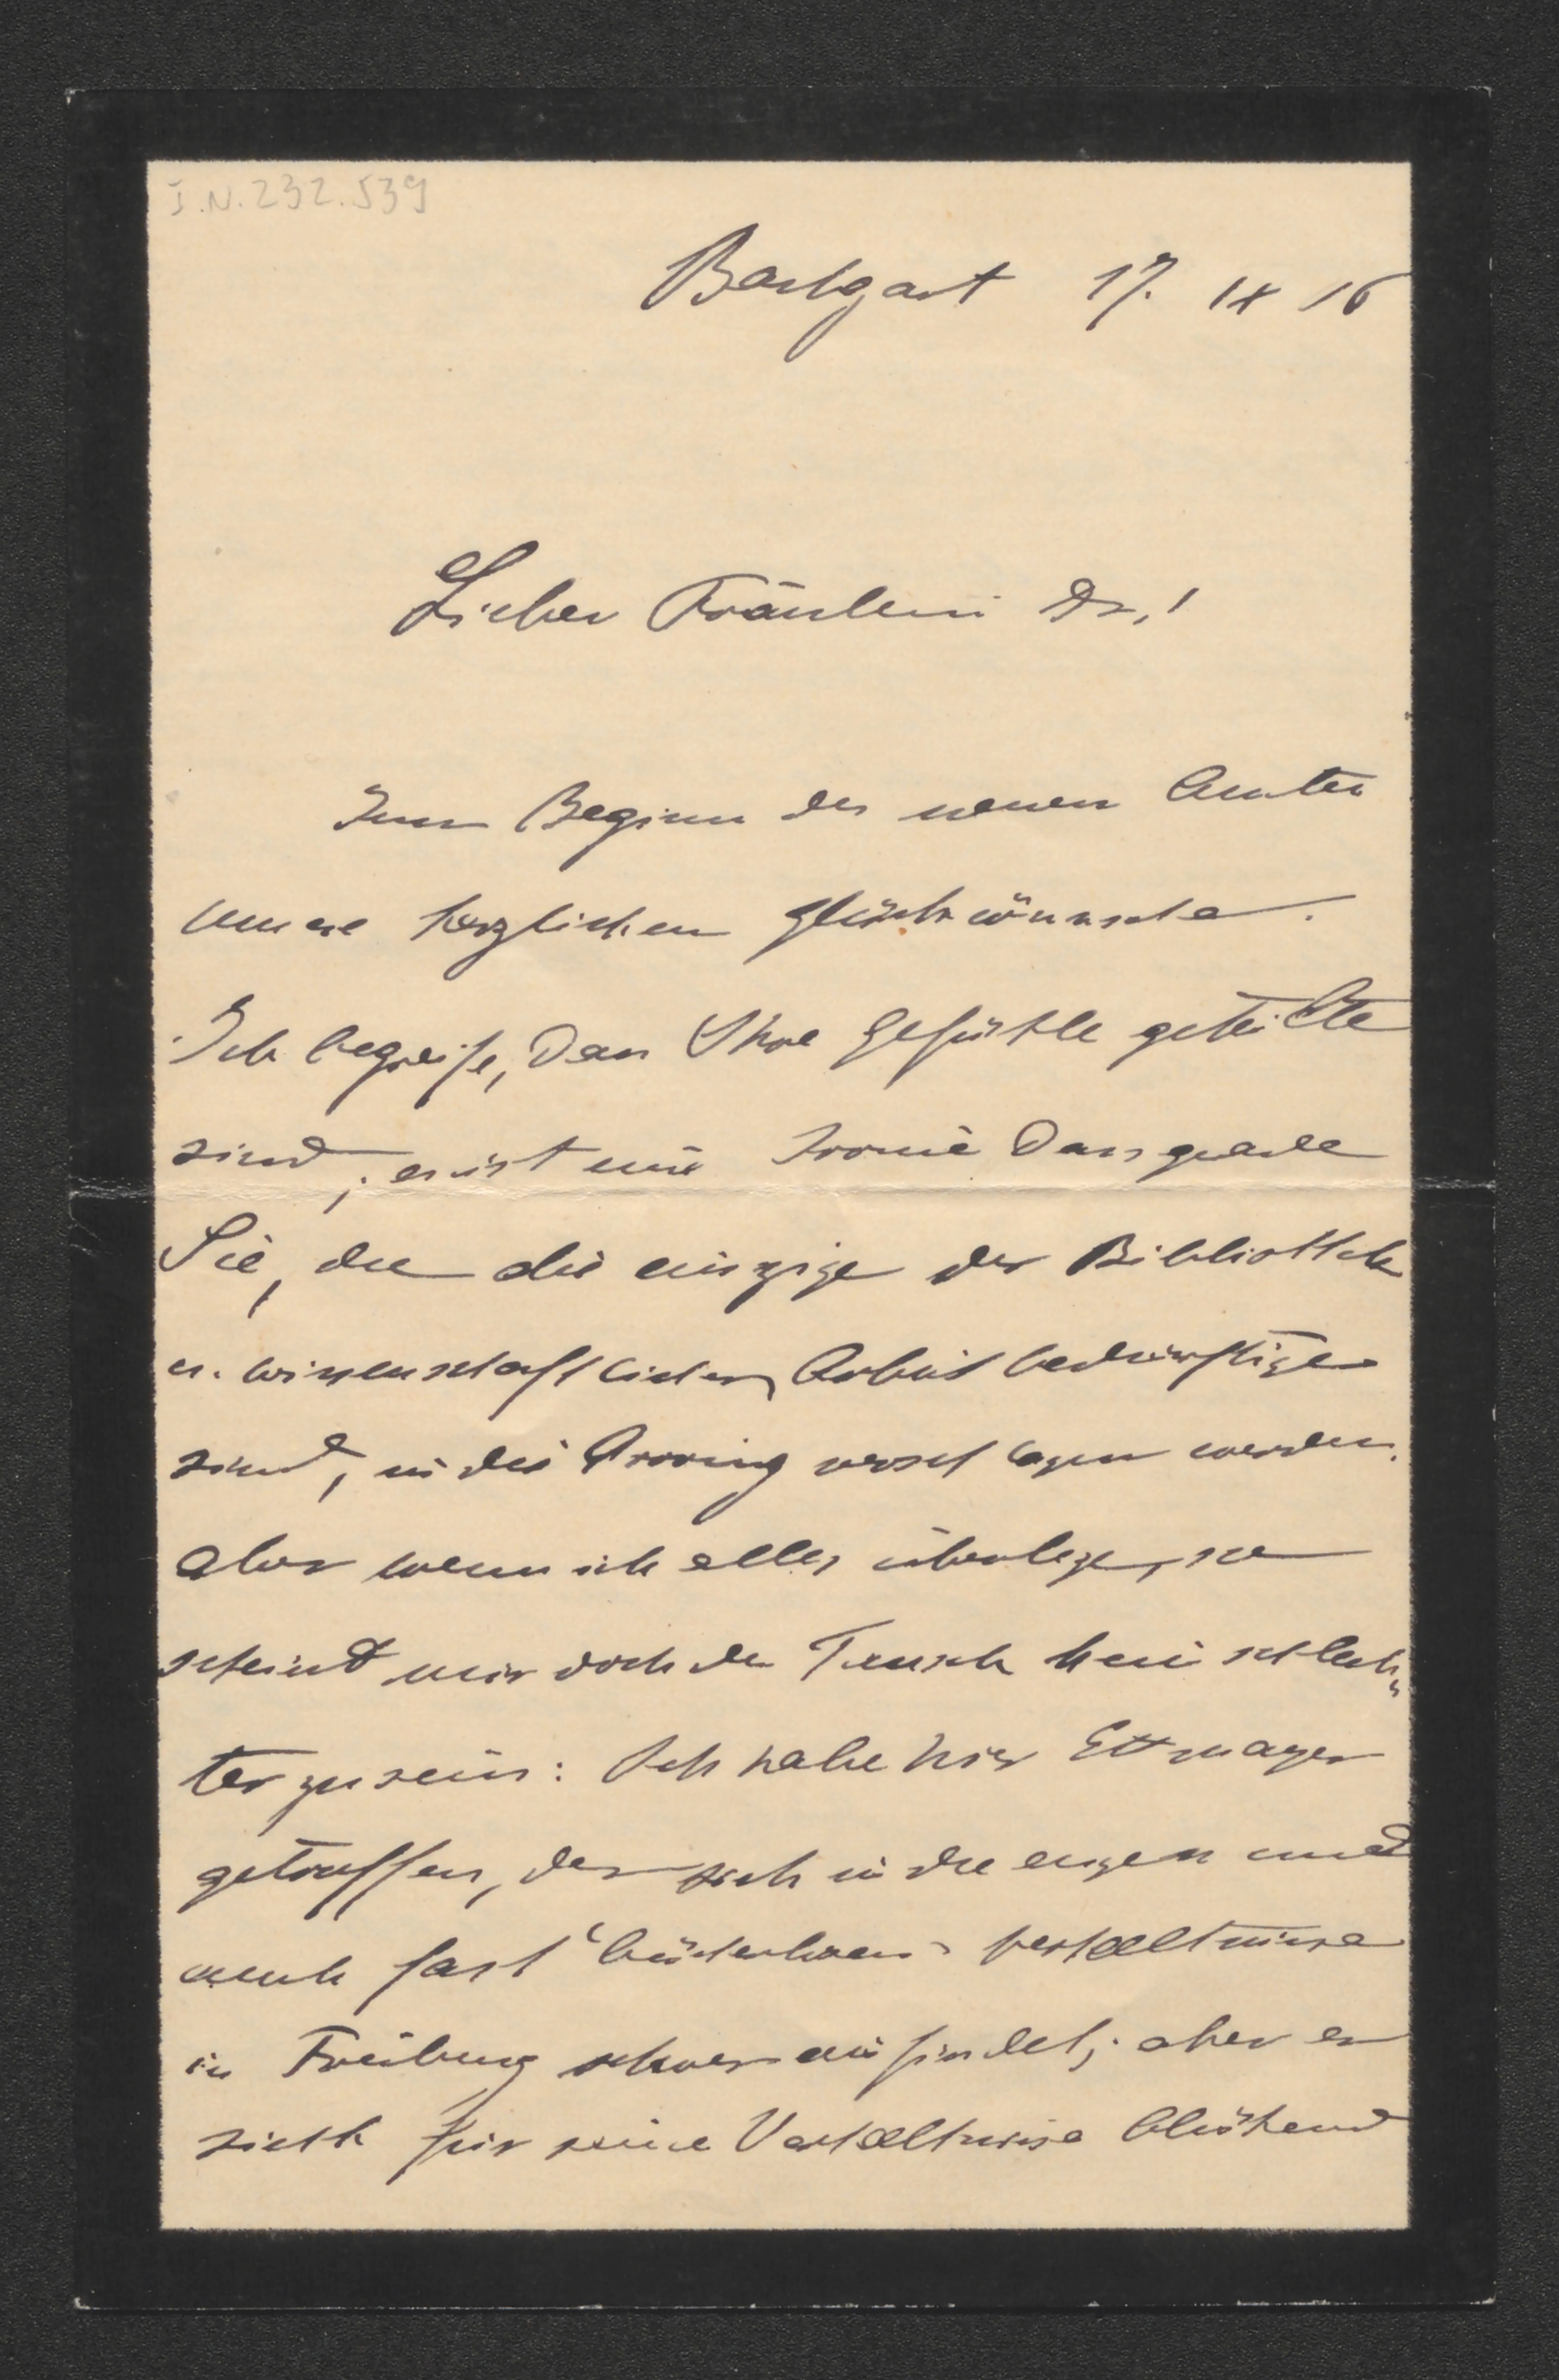 I.N. 232.539
Badgast 17. IX 16
Liebes Fräulein Dr.!
Zum Beginn des neuen Amtes
unsere herzlichen Glückwünsche.
Ich begreife, dass Ihre Gefühle geteilte
sind, es ist eine Ironie dass gerade
Sie, die die einzige der Bibliothek
u. wissenschaftlicher Arbeit bedürftige
sind, in die Provinz verschlagen werden.
Aber wenn ich alles überlege, so
scheint mir doch der Tausch kein schlech„
ter zu sein: Ich habe hier Ettmayer
getroffen, der sich in die engen und
auch fast bücherlosen Verhältnisse
in Freiburg schwer einfindet; aber er
sieht für seine Verhältnisse blühend